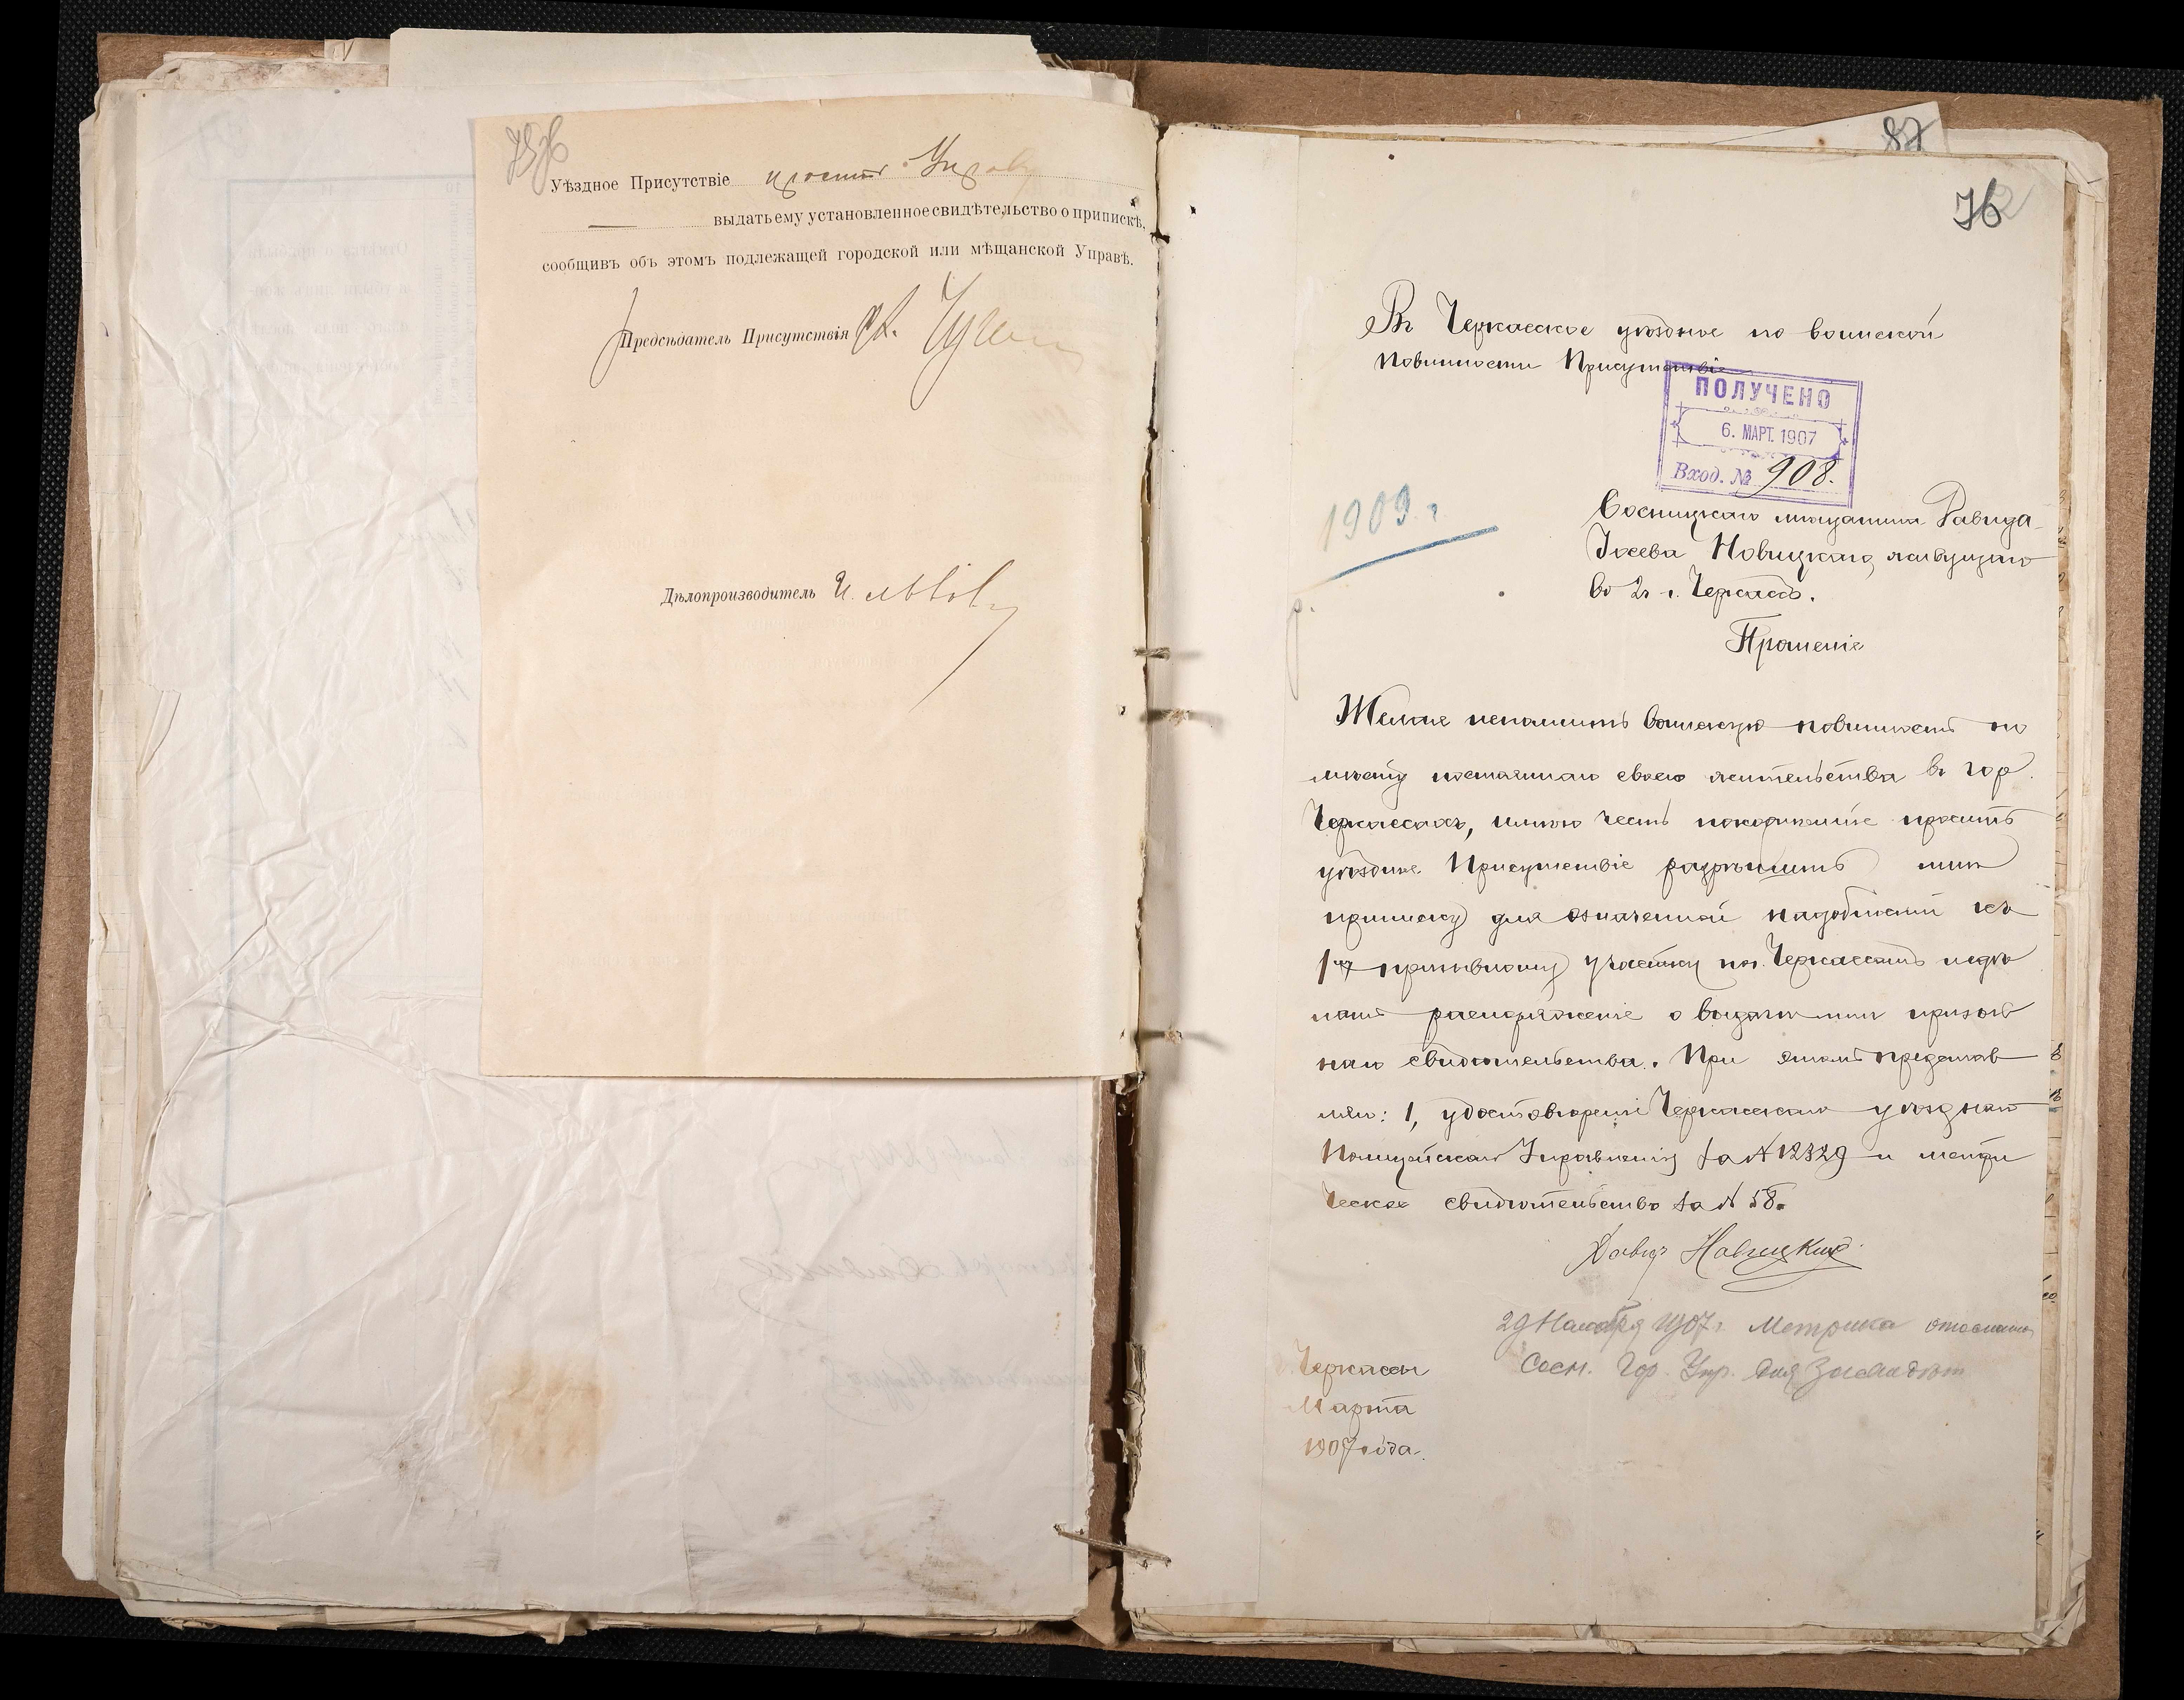 75об
Уѣздное Присутствіе проситъ Управу
выдать ему установленное свидѣтельство о припискѣ,
сообщивъ объ этомъ подлежащей городской или мѣщанской Управѣ.
Предсѣдатель Присутствія
Дѣлопроизводитель
87
76
Въ Черкасское уѣздное по воинской
повинности Присутствіе
ПОЛУЧЕНО
6. МАРТ. 1907
Вход. № 908.
1909 г.
Сосницкаго мѣщанина Давида
Новицкаго, живущаго
въ г. Черкассы.
Прошеніе
Желая исполнить воинскую повинность по
мѣсту постояннаго своего жительства въ гор.
Черкассахъ, имѣю честь покорнѣйше просить
уѣздное Присутствіе разрѣшить мнѣ
приписку для означенной надобности къ
1му призывному участку по г. Черкассамъ и сдѣ
лать распоряженіе о выдачѣ мнѣ призыв
наго свидѣтельства. При этомъ представ
ляю: 1, удостовѣреніе Черкасскаго уѣзднаго
Полицейскаго Управленія за № 12329 и метри
ческое свидѣтельство за № 58.
Давидъ Новицкий
29 Ноября 1907 г. Метрика отослана
Сосн. Гор. Упр. для
Черкассы
Марта
1907 года.